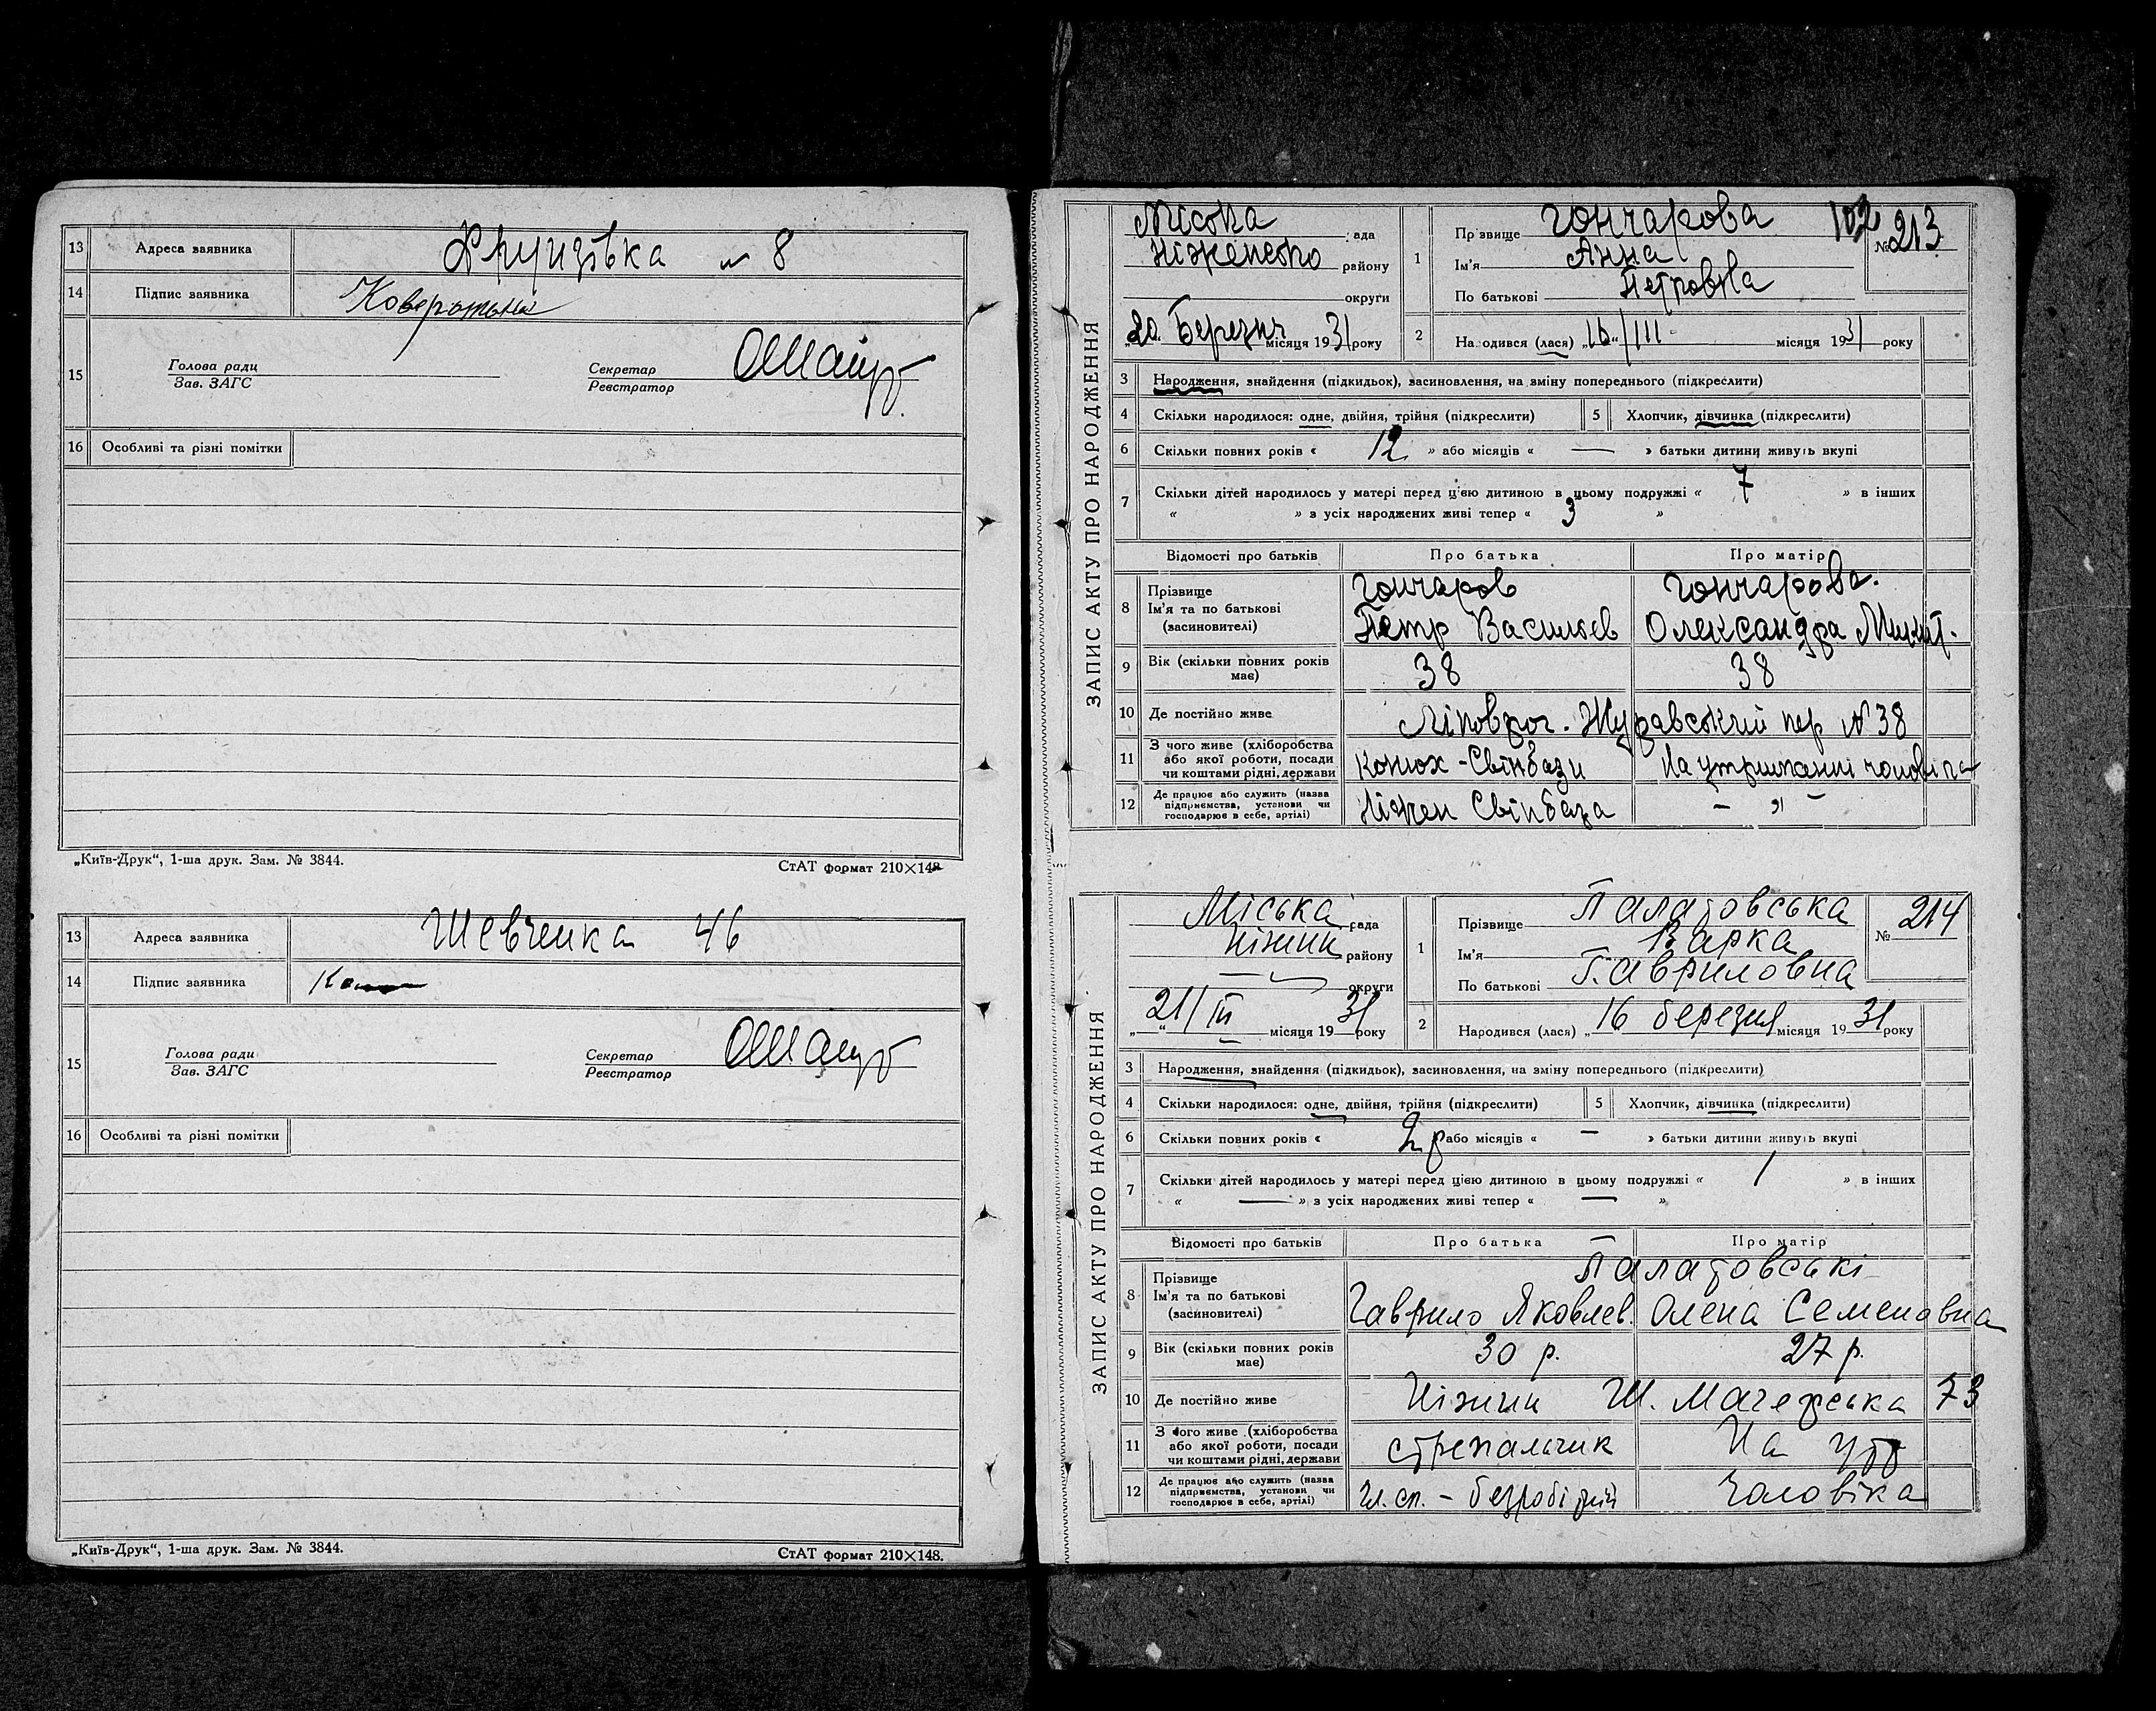 13 Адреса заявника Фрунзівка № 8
14 Підпис заявника
15 Голова ради Секретар
Зав. ЗАГС Реєстратор
16 Особливі та різні помітки
„Київ-Друк“, 1-ша друк. Зам. № 3844. СтАТ формат 210×148.
13 Адреса заявника Шевченка 46
14 Підпис заявника
15 Голова ради Секретар
Зав. ЗАГС Реєстратор
16 Особливі та різні помітки
„Київ-Друк“, 1-ша друк. Зам. № 3844. СтАТ формат 210×148.
ЗАПИС АКТУ ПРО НАРОДЖЕННЯ
Міська рада
району
округи
„20“ Березня місяця 1931 року
1 Прізвище Гончарова
Ім'я Анна
По батькові Петровна
102 № 213
2 Народився (лася) „16“/III місяця 1931 року
3 Народження, знайдення (підкидьок), засиновлення, на зміну попереднього (підкреслити)
4 Скільки народилося: одне, двійня, трійня (підкреслити) 5 Хлопчик, дівчинка (підкреслити)
6 Скільки повних років « 12 » або місяців « — » батьки дитини живуть вкупі
7 Скільки дітей народилось у матері перед цією дитиною в цьому подружжі « 7 » в інших
« » з усіх народжених живі тепер « 3 »
Відомості про батьків Про батька Про матір
8 Прізвище Гончаров Гончарова.
Ім'я та по батькові
(засиновителі) Петр Васильев Олександра
9 Вік (скільки повних років має) 38 38
10 Де постійно живе Журавський пер № 38
11 З чого живе (хліборобства
або якої роботи, посади
чи коштами рідні, держави Конюх - Свінбази На утриманні чоловіка
12 Де працює або служить (назва
підприємства, установи чи
господарює в себе, артілі) Ніжен Свінбаза – „ –
ЗАПИС АКТУ ПРО НАРОДЖЕННЯ
Міська рада
Ніжин району
округи
„21/III місяця 1931 року
1 Прізвище Палатовська
Ім'я Варка
По батькові Гавриловна
№ 214
2 Народився (лася) „16 березня місяця 1931 року
3 Народження, знайдення (підкидьок), засиновлення, на зміну попереднього (підкреслити)
4 Скільки народилося: одне, двійня, трійня (підкреслити) 5 Хлопчик, дівчинка (підкреслити)
6 Скільки повних років « 2 р або місяців « – » батьки дитини живуть вкупі
7 Скільки дітей народилось у матері перед цією дитиною в цьому подружжі « 1 » в інших
« — » з усіх народжених живі тепер « — »
Відомості про батьків Про батька Про матір
8 Прізвище Палатовські
Ім'я та по батькові
(засиновителі) Гаврило Яковлев. Олена Семеновна
9 Вік (скільки повних років має) 30 р. 27 р.
10 Де постійно живе Ніжин Ш. Магерська 73
11 З чого живе (хліборобства
або якої роботи, посади
чи коштами рідні, держави На утр
12 Де працює або служить (назва
підприємства, установи чи
господарює в себе, артілі) Чл. сп. – безробітний Чоловіка